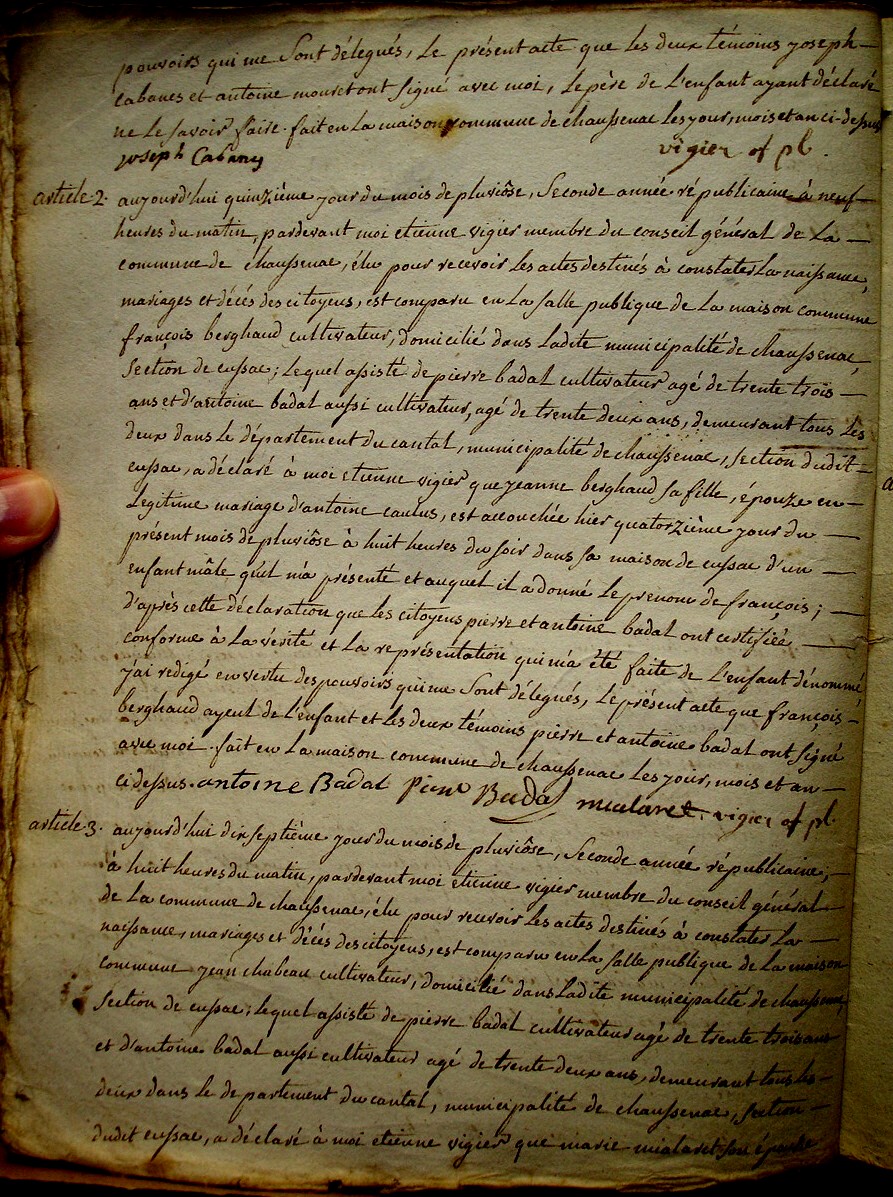 pouvoirs qui me sont délegués, le présent acte que les deux témoins joseph
cabanes et antoine mouret ont signé avec moi, le père de l'enfant ayant déclaré
ne le savoir faire. fait en la maison commune de chaussenac les jour, mois et an ci-dessus
joseph Cabanes vigier of pl.
article 2. aujourd'hui quinzième jour du mois de pluviôse, seconde année républicaine à neuf
heures du matin, pardevant moi etienne vigier membre du conseil général de la
commune de chaussenac, élu pour recevoir les actes destinés à constater la naissance,
mariages et décés des citoyens, est comparu en la salle publique de la maison commune
françois berghaud cultivateur, domicilié dans ladite municipalité de chaussenac,
section de cussac; lequel assisté de pierre badal cultivateur agé de trente trois
ans et d'antoine badal aussi cultivateur, agé de trente deux ans, demeurant tous les
deux dans le département du cantal, municipalité de chaussenac, section dudit
cussac, a déclaré à moi etienne vigier que jeanne berghaud sa fille, épouze en
legitime mariage d'antoine caulus, est accouchée hier quatorzième jour du
présent mois de pluviôse à huit heures du soir dans sa maison de cussac d'un
enfant mâle qu'il m'a présenté et auquel il a donné le prenom de françois;
d'après cette déclaration que les citoyens pierre et antoine badal ont certifiée
conforme à la vérité et la représentation qui m'a été faite de l'enfant dénommé,
j'ai redigé en vertu des pouvoirs qui me sont délegués, le présent acte que françois
berghaud ayeul de l'enfant et les deux témoins pierre et antoine badal ont signé
avec moi. fait en la maison commune de chaussenac les jour, mois et an
ci dessus. antoine Badal Badal mialaret. vigier of pl.
article 3. aujourd'hui dix septième jour du mois de pluviôse, seconde année républicaine,
à huit heures du matin, pardevant moi etienne vigier membre du conseil général
de la commune de chaussenac, élu pour recevoir les actes destinés à constater la
naissance, mariages et décés des citoyens, est comparu en la salle publique de la maison
commune jean chabeau cultivateur, domicilié dans ladite municipalité de chaussenac,
section de cussac; lequel assisté de pierre badal cultivateur agé de trente trois ans
et d'antoine badal aussi cultivateur agé de trente deux ans, demeurant tous les
deux dans le departement du cantal, municipalité de chaussenac, section
dudit cussac, a déclaré à moi etienne vigier que marie mialaret son épouse